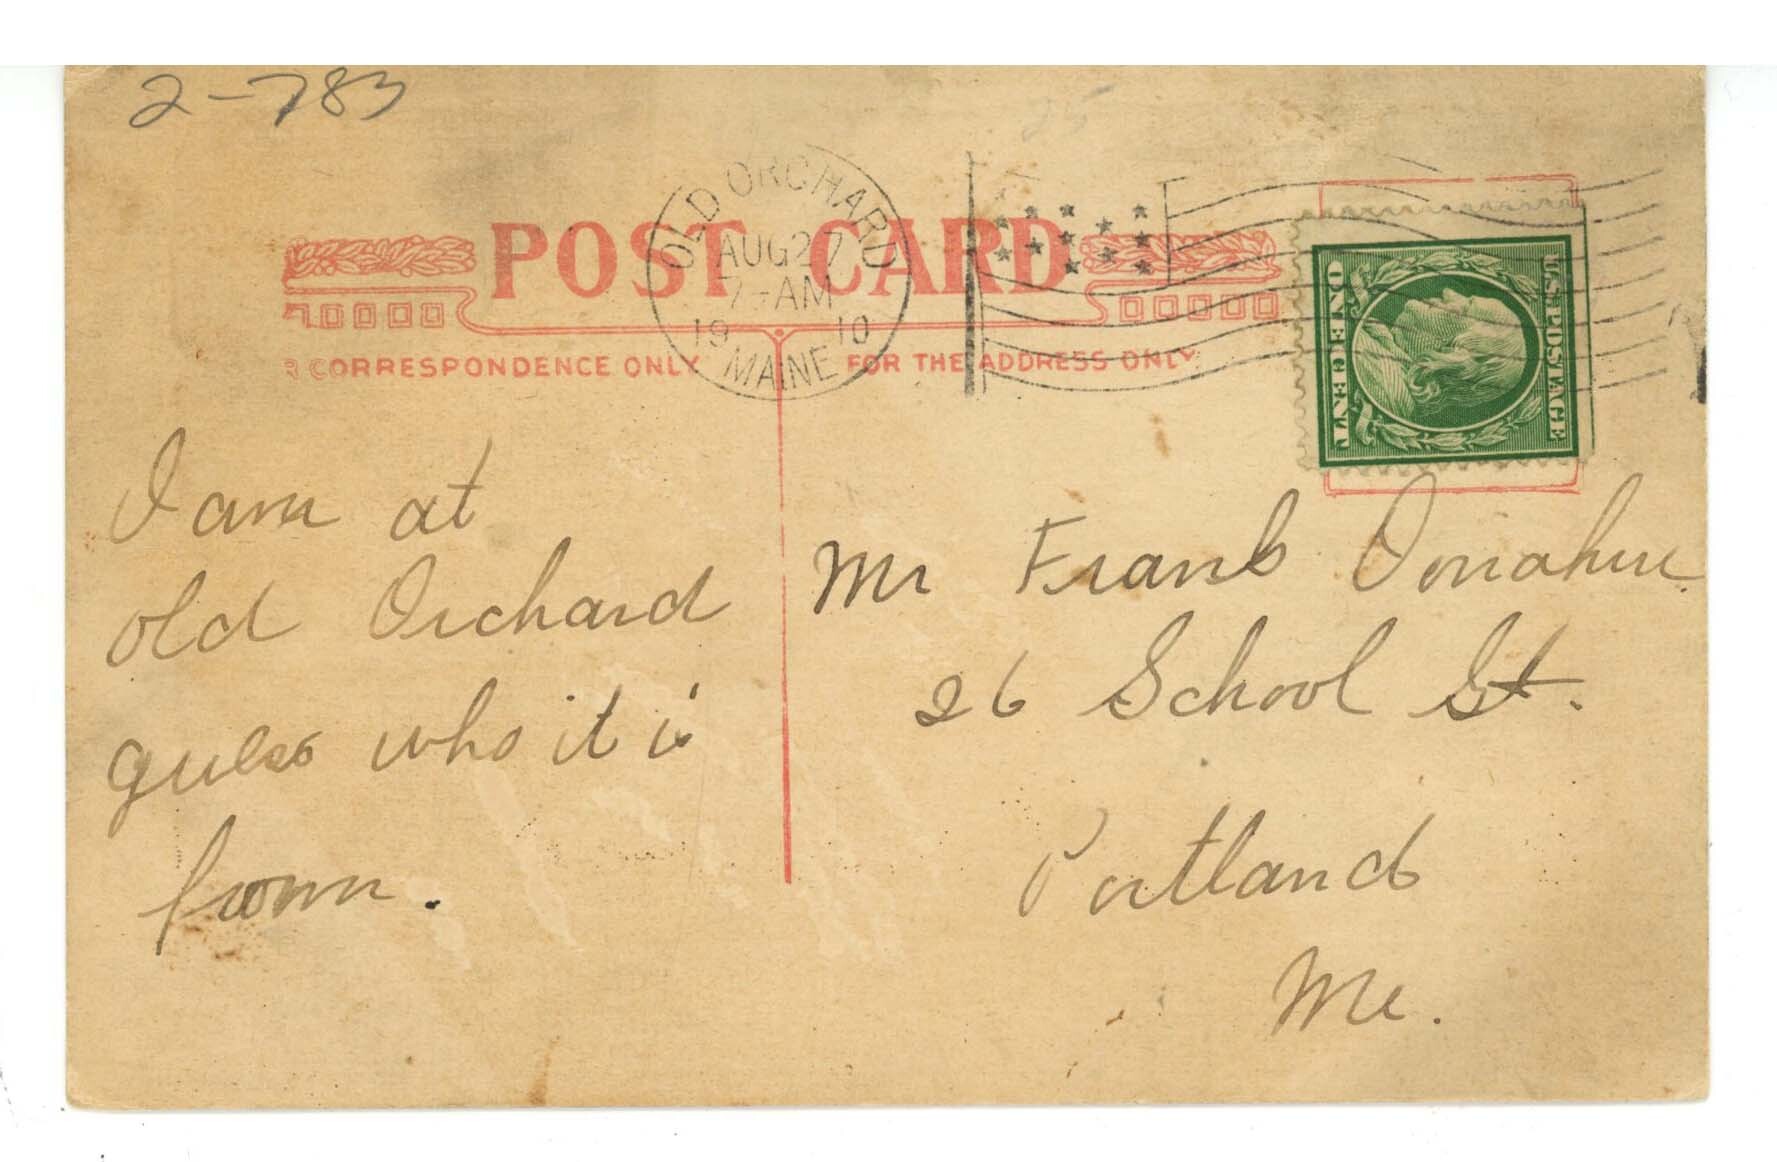 2-783
25
OLD ORCHARD
AUG 27
7-AM
19 10
MAINE
POST CARD
R CORRESPONDENCE ONLY
FOR THE ADDRESS ONLY
U.S. POSTAGE
ONE CENT
I am at
old Orchard
guess who it is
from.
Mr Frank Donahue
26 School St.
Portland
Me.